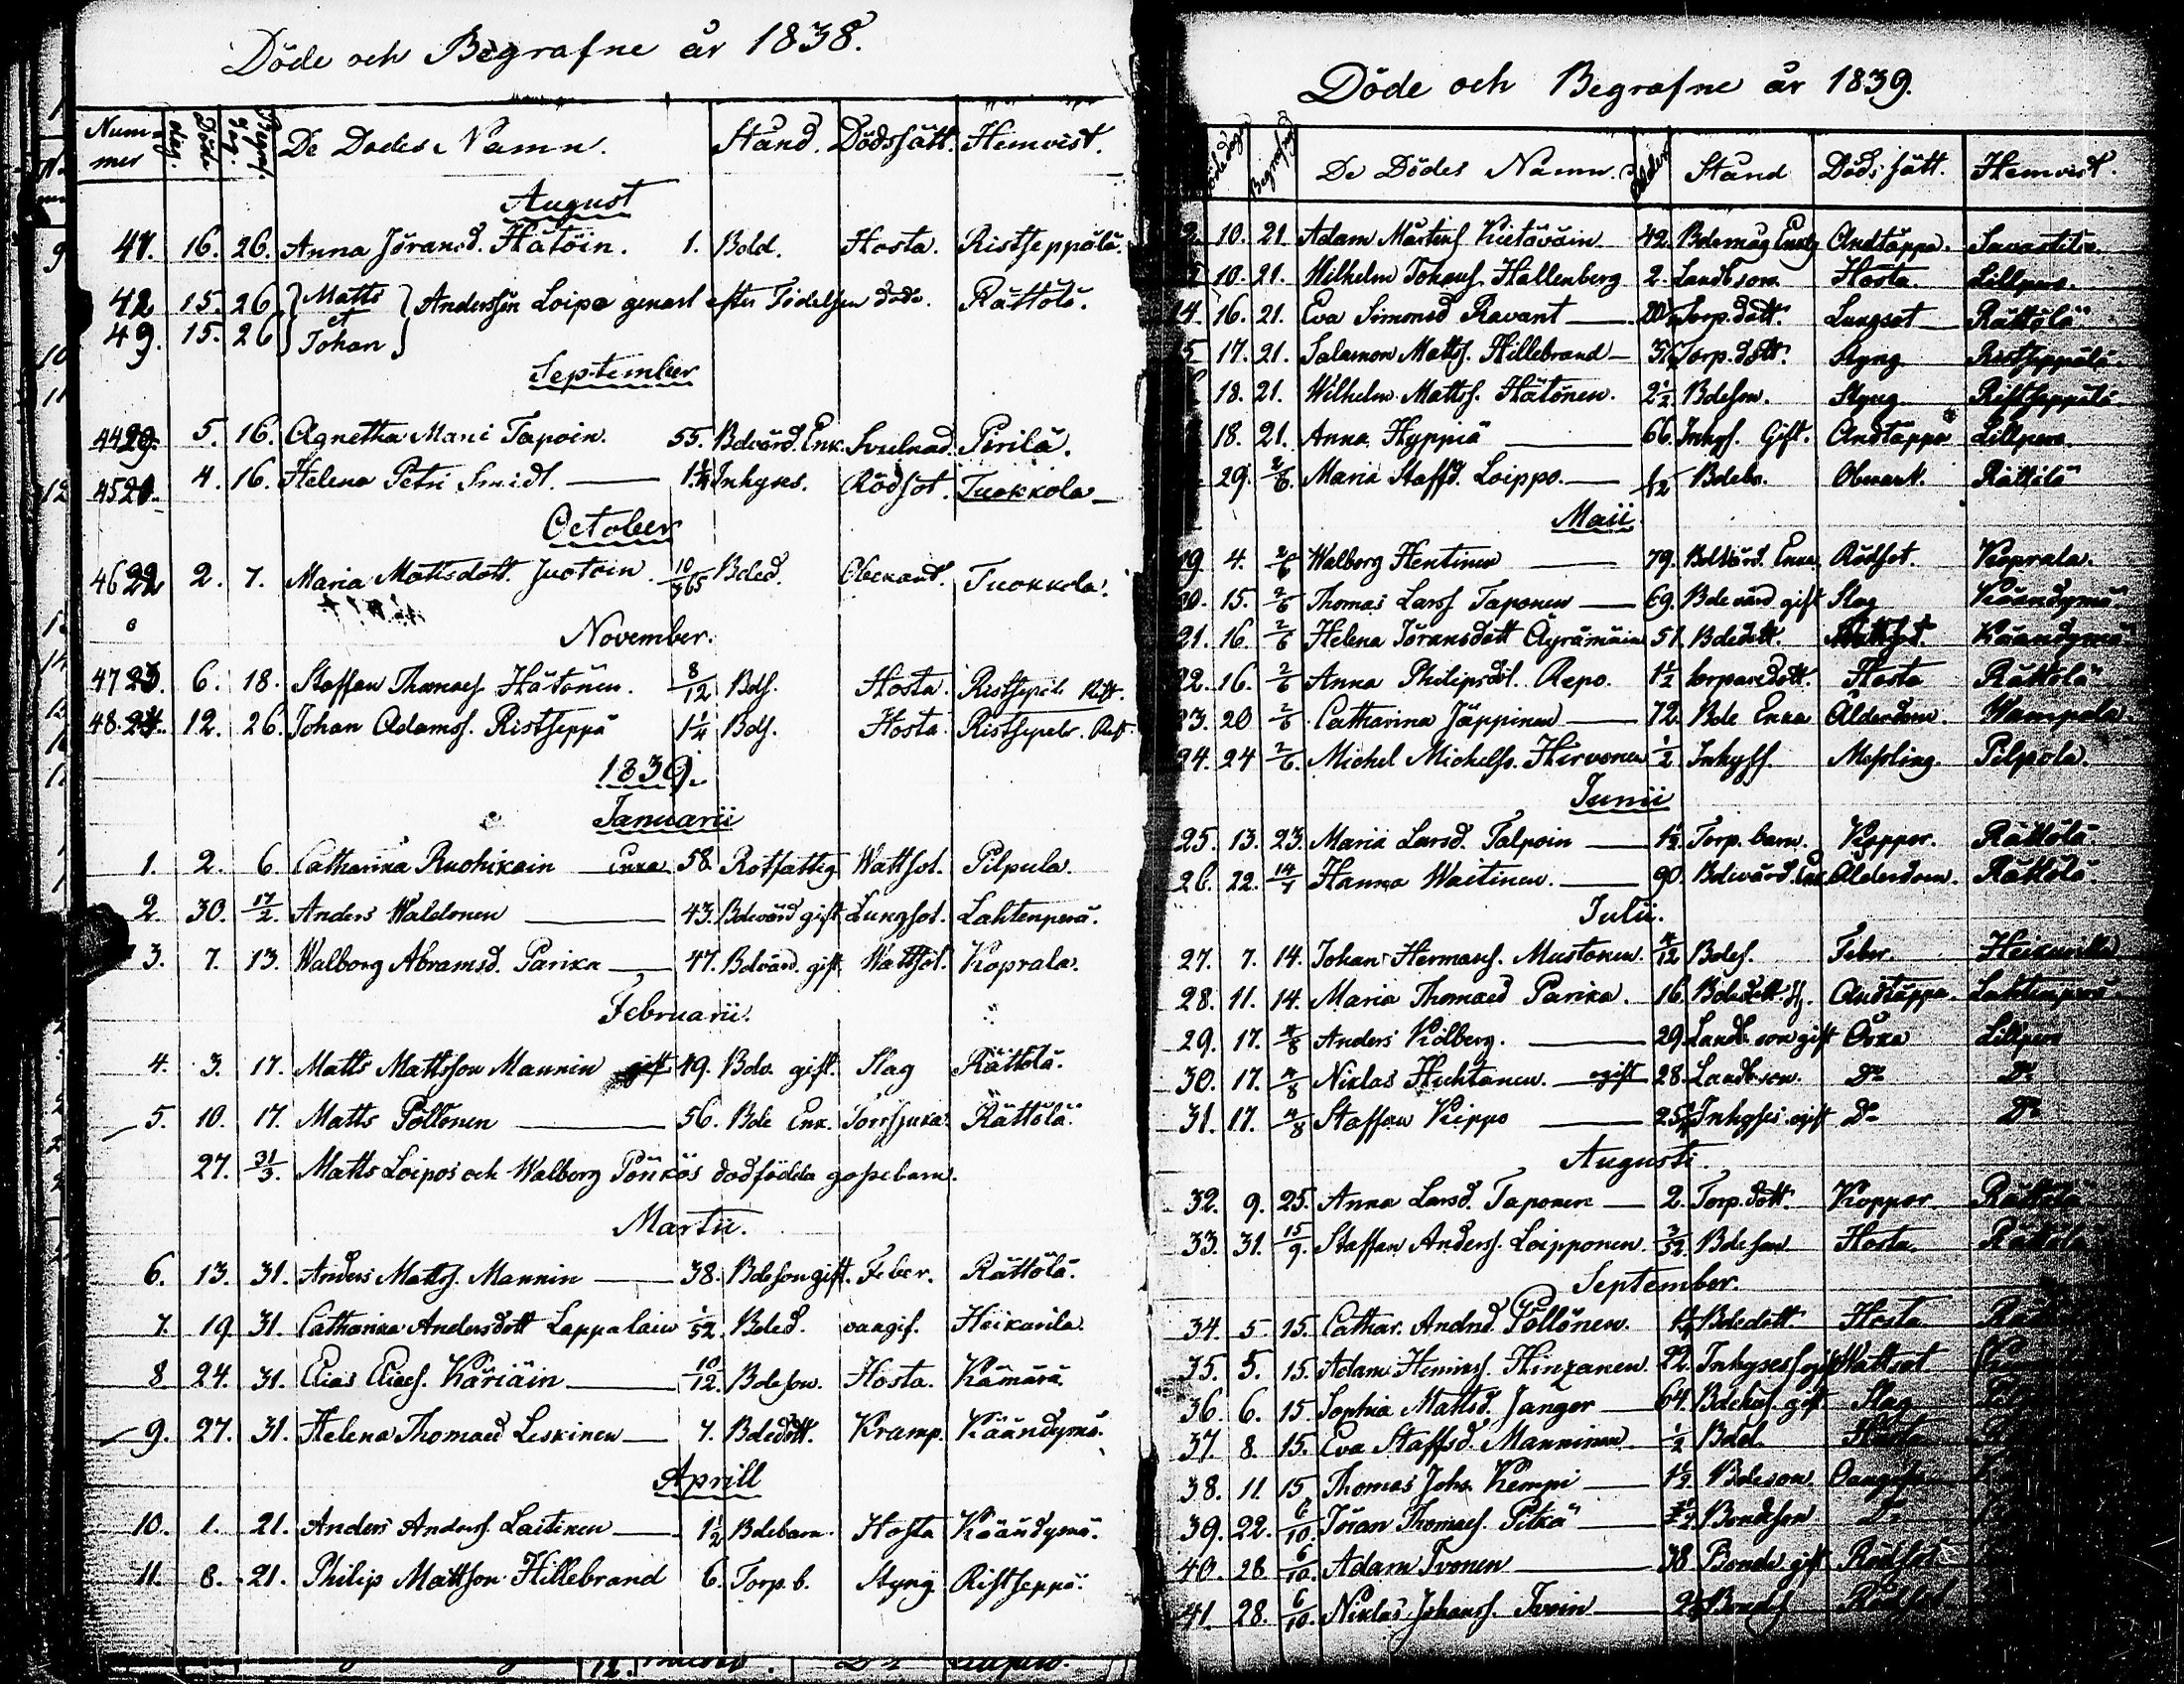 Döde och Begrafne år 1838.
Num-mer Döde dag. Begraf. dag. De Dodes Namn. Stånd. Dödssätt. Hemvist.
August
41. 16. 26. Anna Jöransd. Hätöin. 1. Bold. Hosta. Ristseppälä.
42 15. 26 Matts et
49. 15. 26 Johan Anderssön Loipo genast efter Födelsen döde. Rättölä.
September
44 5. 16. Agnetha Mani Tapoin. 55. Bdvärd. Enk. Svulnad. Pirilä.
45 4. 16. Helena Petri Smidt. 1 1/4 Inhyses. Rödsot. Tuokkola
October
46 22 2. 7. Maria Mattsdott. Juotoin 10/365 Bded. Obekant. Tuokkola.
November.
47 23. 6. 18. Staffan Thomaes. Hätönen. 8/12 Bds. Hosta. Ristsepelä Rist.
48. 24. 12. 26. Johan Adamss. Ristseppä 1 1/4 Bds. Hosta. Ristsepelä. Rist.
1839.
Januarii
1. 2. 6. Catharina Ruohikain Enka 58. Rotfattig Wattsot. Pilpula.
2. 30. 17/2. Anders Waldonen 43. Bdevärd gift Lungsot. Lahtenperä.
3. 7. 13. Walborg Abramsd. Parika 47. Bdvärd. gift. Wattsot. Koprala.
Februarii.
4. 3. 17. Matts Mattsson Mannin gift 49. Bdv. gift. Slag Rättölä.
5. 10. 17. Matts Pöllönen 56. Bde Enk. Torrsjuka. Rättölä.
27. 31/3. Matts Loipos och Walborg Pönkös dödfödda gossebarn.
Martii.
6. 13. 31. Anders Matts. Mannin 38. Bdeson gift. Feber. Rättölä.
7. 19. 31. Catharina Andersdott Lappalain 1/52. Bded. oangif. Heikurila.
8. 24. 31. Elias Eliaes. Käriäin 10/12. Bdeson. Hosta. Kämärä.
9. 27. 31. Helena Thomaed Leskinen 7. Bdedott. Kramp. Käändymä.
Aprill
10. 1. 21. Anders Anders. Laitinen 1 1/2 Bdebarn. Hosta Käändymä.
11. 8. 21. Philip Mattson Hillebrand 6. Torp. b. Styng Ristseppä.
Döde och Begrafne år 1839.
Döde dag Begrafne De Dödes Namn. Ålder Stånd Döds sätt. Hemvist.
10. 21. Adam Mårtens. Kietäväin 42. Bdemåg Andtäppa. Savastila.
10. 21. Wilhelm Johans. Hallenberg 2. Landb. son. Hosta. Lillpero.
14. 16. 21. Eva Simonsd Ravant Torp. dott. Lungsot Rättölä
17. 21. Salamon Matts. Hillebrand Torp. dott. Styng Ristseppälä
18. 21. Wilhelm Matts. Hätönen. 2 1/2. Bdeson. Styng Ristseppälä
18. 21. Anna Hyppiä 66. Inhys. Gift. Andtäppa Lillpero.
29. 2/6. Maria Staffd. Loippo. Bdeb. Obekant. Rättölä
Maii.
19. 4. 2/6 Walborg Hentinen 79. Bdevärd. Enka Rödsot. Koprala.
20. 15. 2/6 Thomas Larss Taponen 69. Bde värd gift Slag Käändymä
21. 16. 2/6 Helena Jöransdott Äyrämäin 51. Bdedott. Wattsot. Käändymä
22. 16. 2/6 Anna Philipsdot. Repo. 1 1/2 torpare dott. Hosta Rättölä
23. 20 2/6 Catharina Jäppinen 72. Bde Enka Ålderdom. Wampola.
24. 24 2/6. Michel Michelss. Hirvonen 1/2 Inhyss. Messling. Pilpola.
Junii
25. 13. 23. Maria Larsd. Talpoin 1 1/2. Torp. barn. Koppor. Rättölä.
26. 22. 14/7 Hanna Waitinen. 90. Bdevärd. Enk Ålderdom. Rättölä.
Julii.
27. 7. 14. Johan Hermans. Mustonen. 4/12 Bdes. Feber. Heikurila
28. 11. 14. Maria Thomaed Parika. 16. Bdedott. Andtäppa. Lahtenperä
29. 17. 4/8 Anders Kilberg. 29. Landb. son gift Åska Lillpero
30. 17. 4/8 Niklas Huhtanen. ogift 28. Landb. son. Do Do
31. 17. 4/8 Staffan Kippo 25 Inhyses. ogift Do Do
Augusti.
32. 9. 25. Anna Larsd. Taponen 2. Torp. dott. Koppor Rättölä
33. 31. 15/9. Staffan Anders. Loipponen. 3/52 Bdeson Hosta. Rättölä
September.
34. 5 15. Cathar. Andrsd. Pöllönen. Bdedott. Hosta
35. 5. 15. Adam Hemings. Hinzanen. 22. Wattsot
36. 6. 15. Sophia Mattsd. Janger 64. gift. Slag
37. 8. 15. Eva Staffsd. Manninen 1/2 Bded.
38. 11. 15 Thomas Johs. Kempi 1 1/2. Bdeson.
39. 22. 6/10. Jöran Thomaes. Pitkä Bondeson Do
40. 28. 6/10. Adam Ivonen 38 Bonde gift Rödsot
41. 28. 6/10. Niklas Johans. Ivoin Rödsot